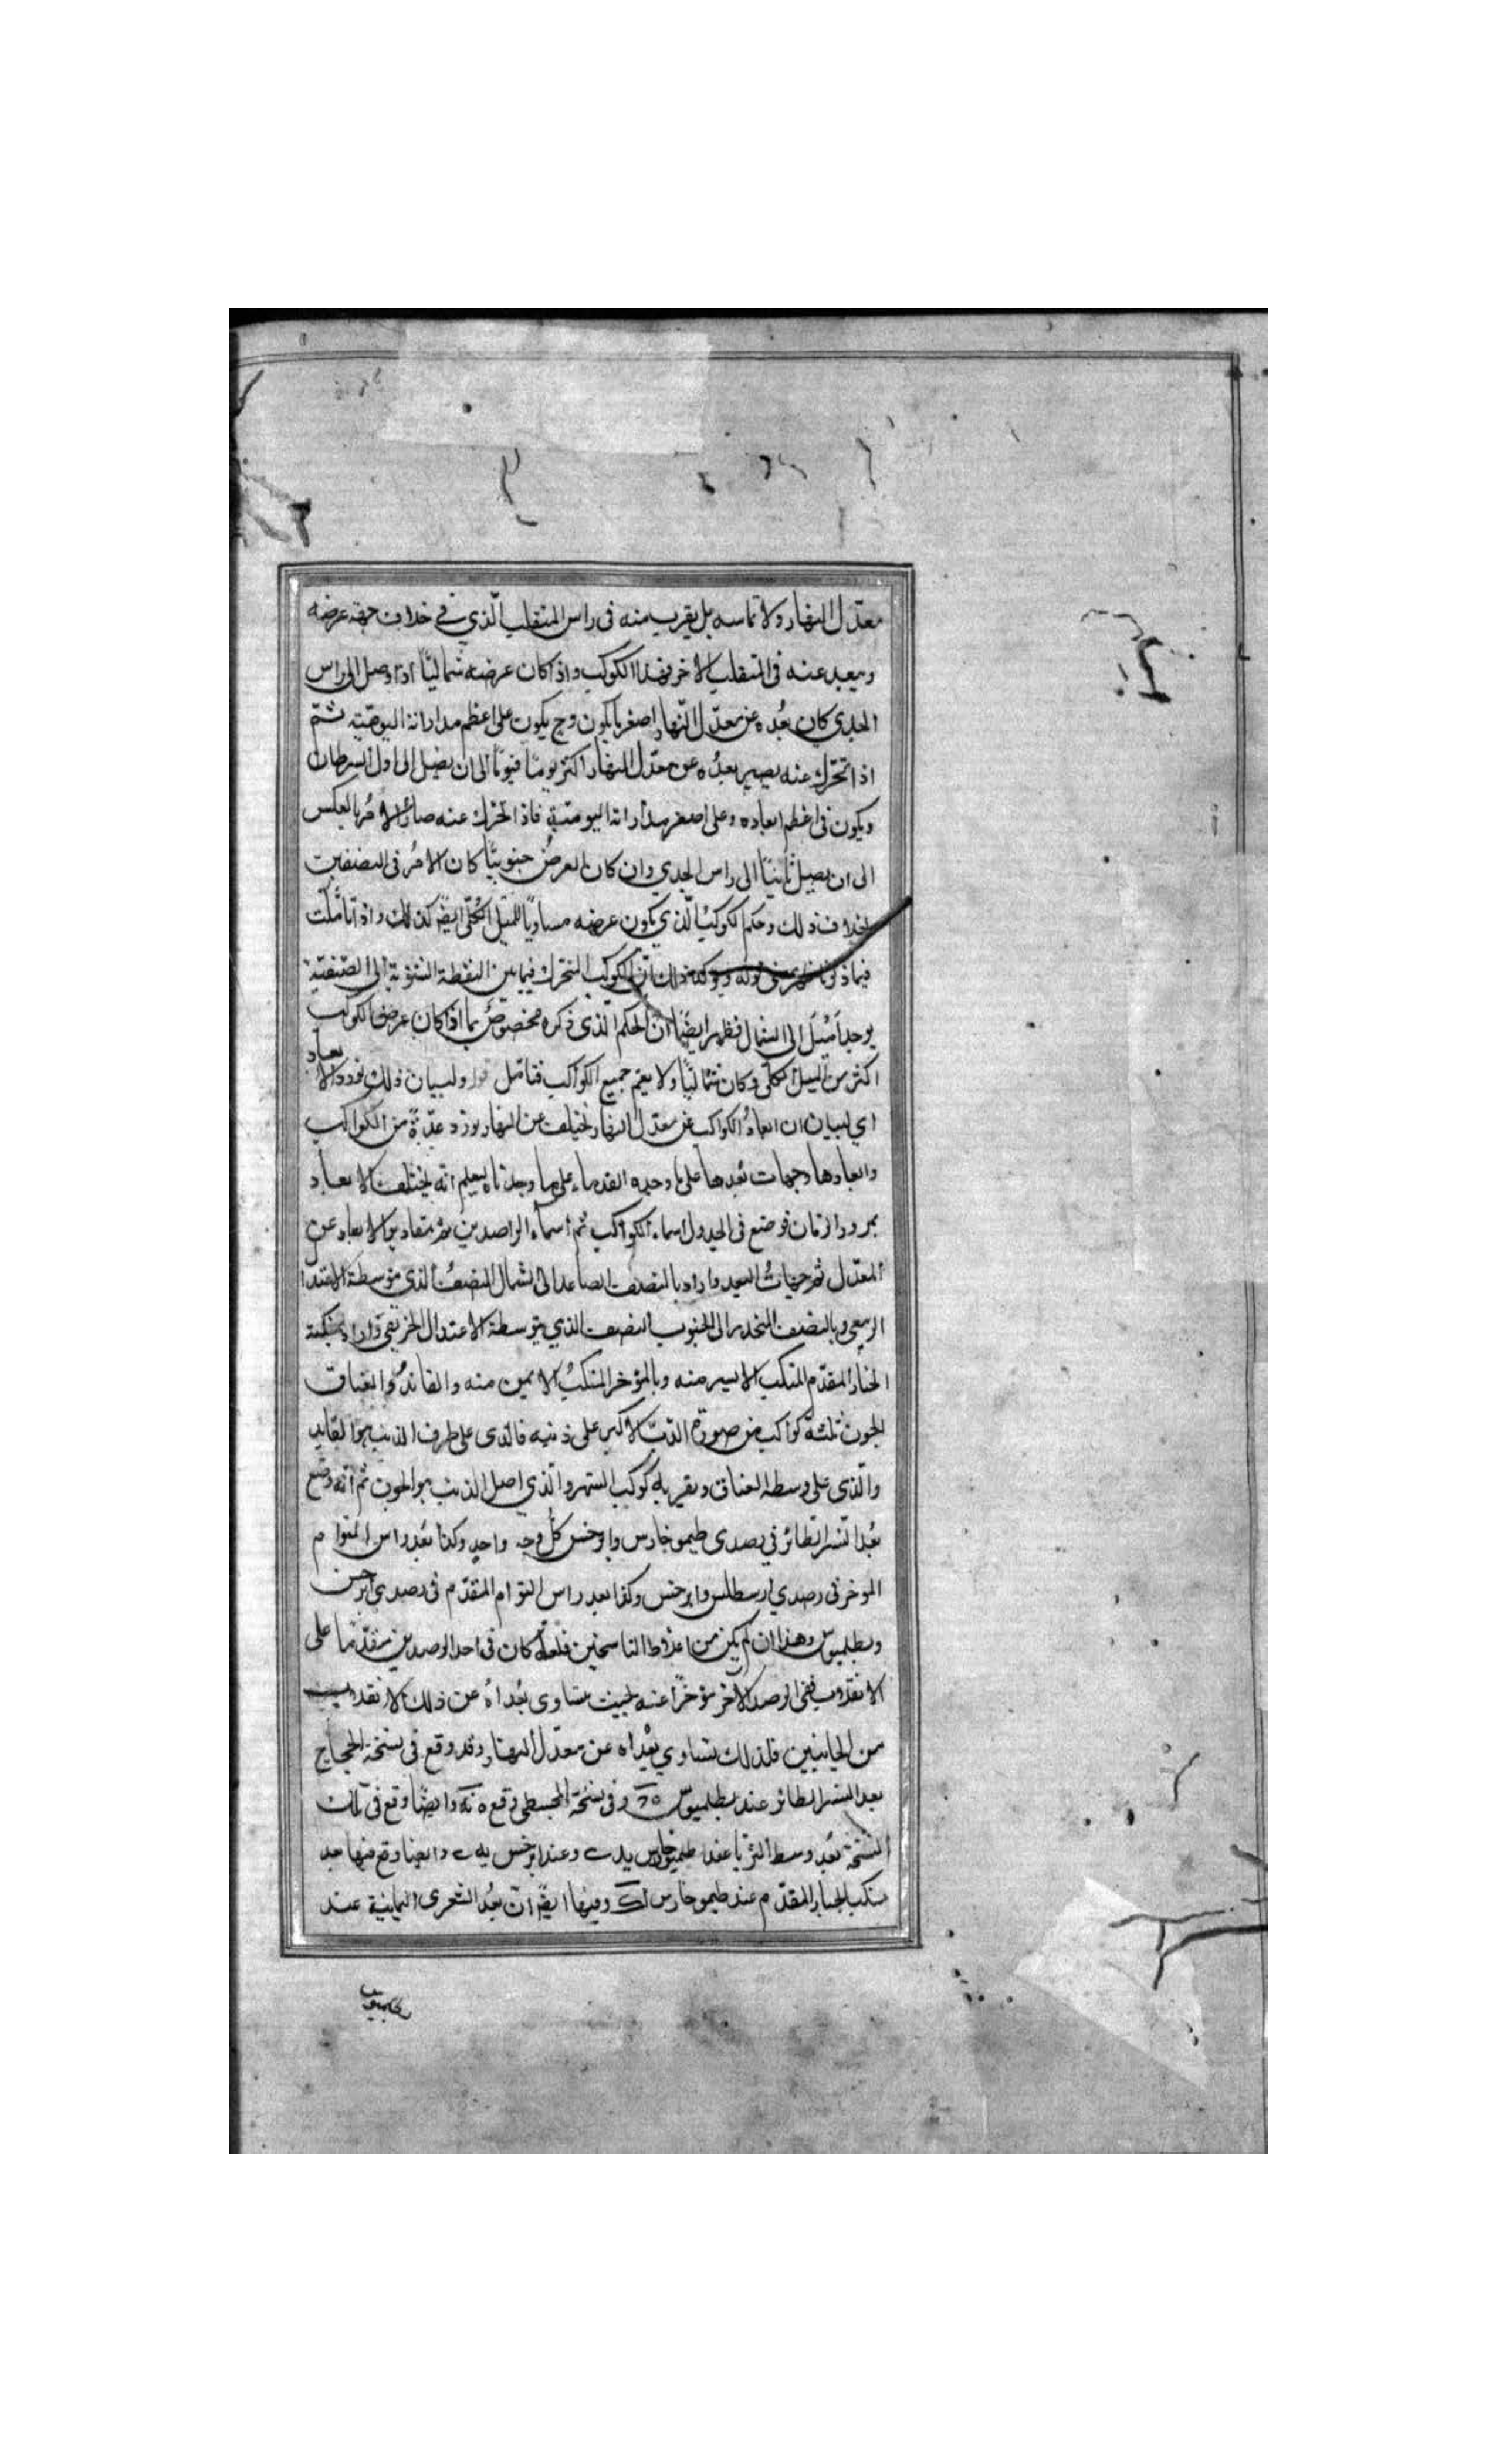 معدّل النهار ولا تماسه بل يقرب منه فى راس المنقلب الّذي فے خلاف جهة عرضه
ويبعد عنه فى المنقلب الاخر فهذا الكوكب واذ اكان عرضه شماليّا اذا وصل الى راس
الجدي كان بُعده عن معدّل النّهار اصغر ما يكون وح يكون على اعظم مداراته اليوميّه ثمّ
اذا تحرّك عنه يصير بعدُه عن معدّل النهار اكثر يومًا فيومًا الى ان يصل الى اول السرطان
ويكون فى اعظم ابعاده وعلى اصغر مداراته اليوميّة فاذا تحرّك عنه صار الامُر بالعكس
الى ان يصل ثانيًا الى راس الجدي وان كان العرضُ جنوبيًّا كان الامُر فى النصفين
بخلاف ذلك وحكم الكوكبُ الّذي يكون عرضه مساويًا للميل الكلّى ايضً كذلك واذا تامّلت
فيما ذكرنا ظهر معنى قوله ويوكد ذلك انّ الكوكب المتحرك فيما بين النقطة الشتوية الى الصّيفيّة
يوجد اَمْيَلَ الى الشمال فظهر ايضًا انّ الحكم الّذى ذكره مخصوصُ بما اذا كان عرض الكوكب
اكثر من الميل الكلّى وكان شماليًّا ولا يعمّ جميع الكواكب فتامّل قوله ولبيان ذلك نورد الابعاد
اي لبيان ان ابعادُ الكواكب عن معدّل النهار تختلف عن النهار نورد عدّةً من الكواكب
وابعادها وجهات بُعدها على ما وجده القدماء على ما وجدناه ليعلم انّه يختلف الابعاد
بمرور الزمان فوضع فى الجدول اسماء الكواكب ثم أسماء الراصدين ثم مقادير الابعاد عن
المعدّل ثم جهاتُ البعد واراد بالنصف الصاعد الى الشمال النصفُ الذى متوسطة الاعتدا
الربيعى وبالنصف المنحدر الى الجنوب النصف الذي يتوسطة الاعتدال الخريفى واراد بمنكبة
الجبار المقدّم المنكب الايسر منه وبالمؤخر المنكبُ الايمن منه والقائدُ والعناق
الجون ثلثة كواكب من صورة الدبّ الاكبر على ذنبه فالذى على طرف الذنب هو القايد
والّذى على وسطه العناق وبقربه كوكب السّها والّذي اصل الذنب هو الجون ثم انّه وضع
بُعد النسر الطائر في رصدى طيموخارس وابرخس كل وجه واحد وكذا بُعد راس التوام
الموخر فى رصدي ارسطلس وابرخس وكذا بعد راس التوام المقدّم فى رصدي ابرخس
وبطلميوس وهذا ان لم يكن من اغلاط الناسخين فلعلّه كان فى احد الرصدين متقدّما على
الانقلاب وفى الرصد الآخر مؤخرًا عنه بحيث يتساوى بُعداهُ عن ذلك الانقلاب
من الجانبين فلذلك تساوي بُعْداه عن معدّل النهار وقد وقع فى نسخة الحجاج
بعد النسر الطائر عند بطلميوس وفى نسخة المجسطى وقع ه نه وايضًا وقع فى تلك
النسخة بُعد وسط الثريا عند طيموخارس يد وعند ابرخس يه وايضا وقع فيها بعد
منكب الجبار المقدّم عند طيموخارس اك وفيها ايضً انّ بعُد الشعرى اليمانية عند
بطلميوس